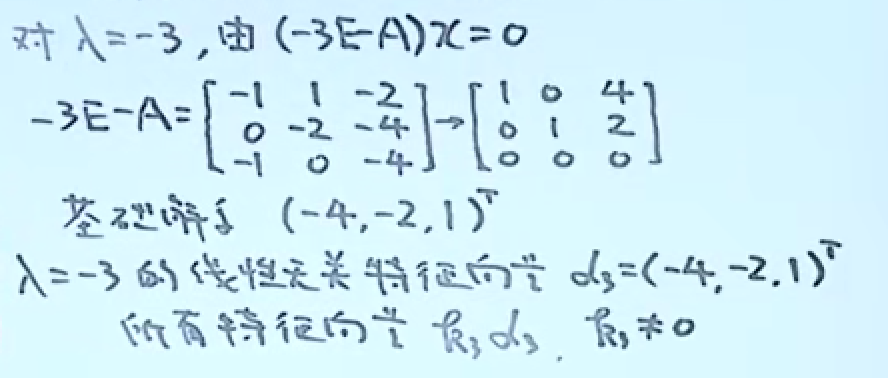 对 λ=-3, 由 (-3E-A)x=0
-3E-A=[-1 1 -2; 0 -2 -4; -1 0 -4]→[1 0 4; 0 1 2; 0 0 0]
基础解系 (-4,-2,1)ᵀ
λ=-3 的线性无关特征向量 α₃=(-4,-2,1)ᵀ
所有特征向量 k₃α₃, k₃≠0